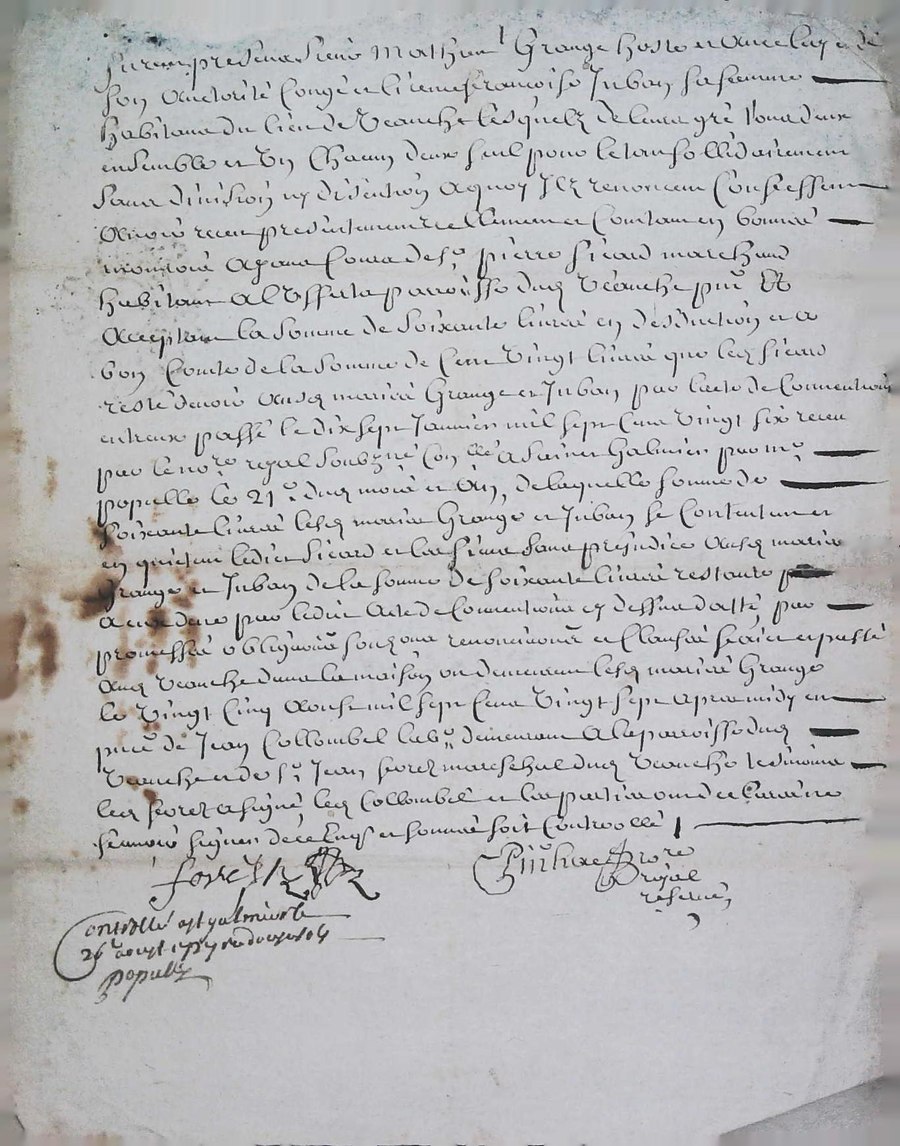 furent presens sieur Mathieu Grange hoste et avec luy de
son authorité congé et licence francoise Juban sa femme
habitans du lieu de Veauche lesquelz de leurs gré tous deux
ensemble et Un Chacun deux seul pour le tout sollidairement
sans division ny disention aquoy Ilz renoncent Confessent
avoir receu presentement reellement et Comtant en bonnes
monoies ayans Cours de sr. pierre sicard marchand
habitant a parroisse dud Veauche pnt Et
Acceptant la somme de soixante livres en desduction et a
bon Comte de la somme de Cent Vingt livres que led sicard
reste devoir ausd mariés Grange et Juban par lacte de Conventions
entreux passé le dix sept Janvier mil sept Cens Vingt six receu
par le nore royal soubzné Conllé a Saint Galmier par mr.
populle le 21e. dud mois et an, de laquelle somme de
soixante livres lesd mariés Grange et Juban se Contentent et
en quictent ledict sicard et les siens sans prejudice ausd mariés
Grange et Juban de la somme de soixante livres restante
a eux deue par ledict Acte de Conventions cy dessus datté, par
promesses obligaons renonciaons et Clauses faict et passé
aud Veauche dans la maison ou demeurent lesd mariés Grange
le Vingt Cinq Aoust mil sept Cens Vingt sept apres midy en
pnce de Jean Collombel labr. demeurant a la parroisse dud
Veauche et de sr. Jean forez mareschal dud Veauche tesmoins
led forez a signé, led Collombel et les parties ont declaré ne
scavoir signer de ce Enqs et sommés soit Controollé
forest
nore
royal
reservé
Controllé a st galmier le
26e aoust 1727 recu douze sols
populle